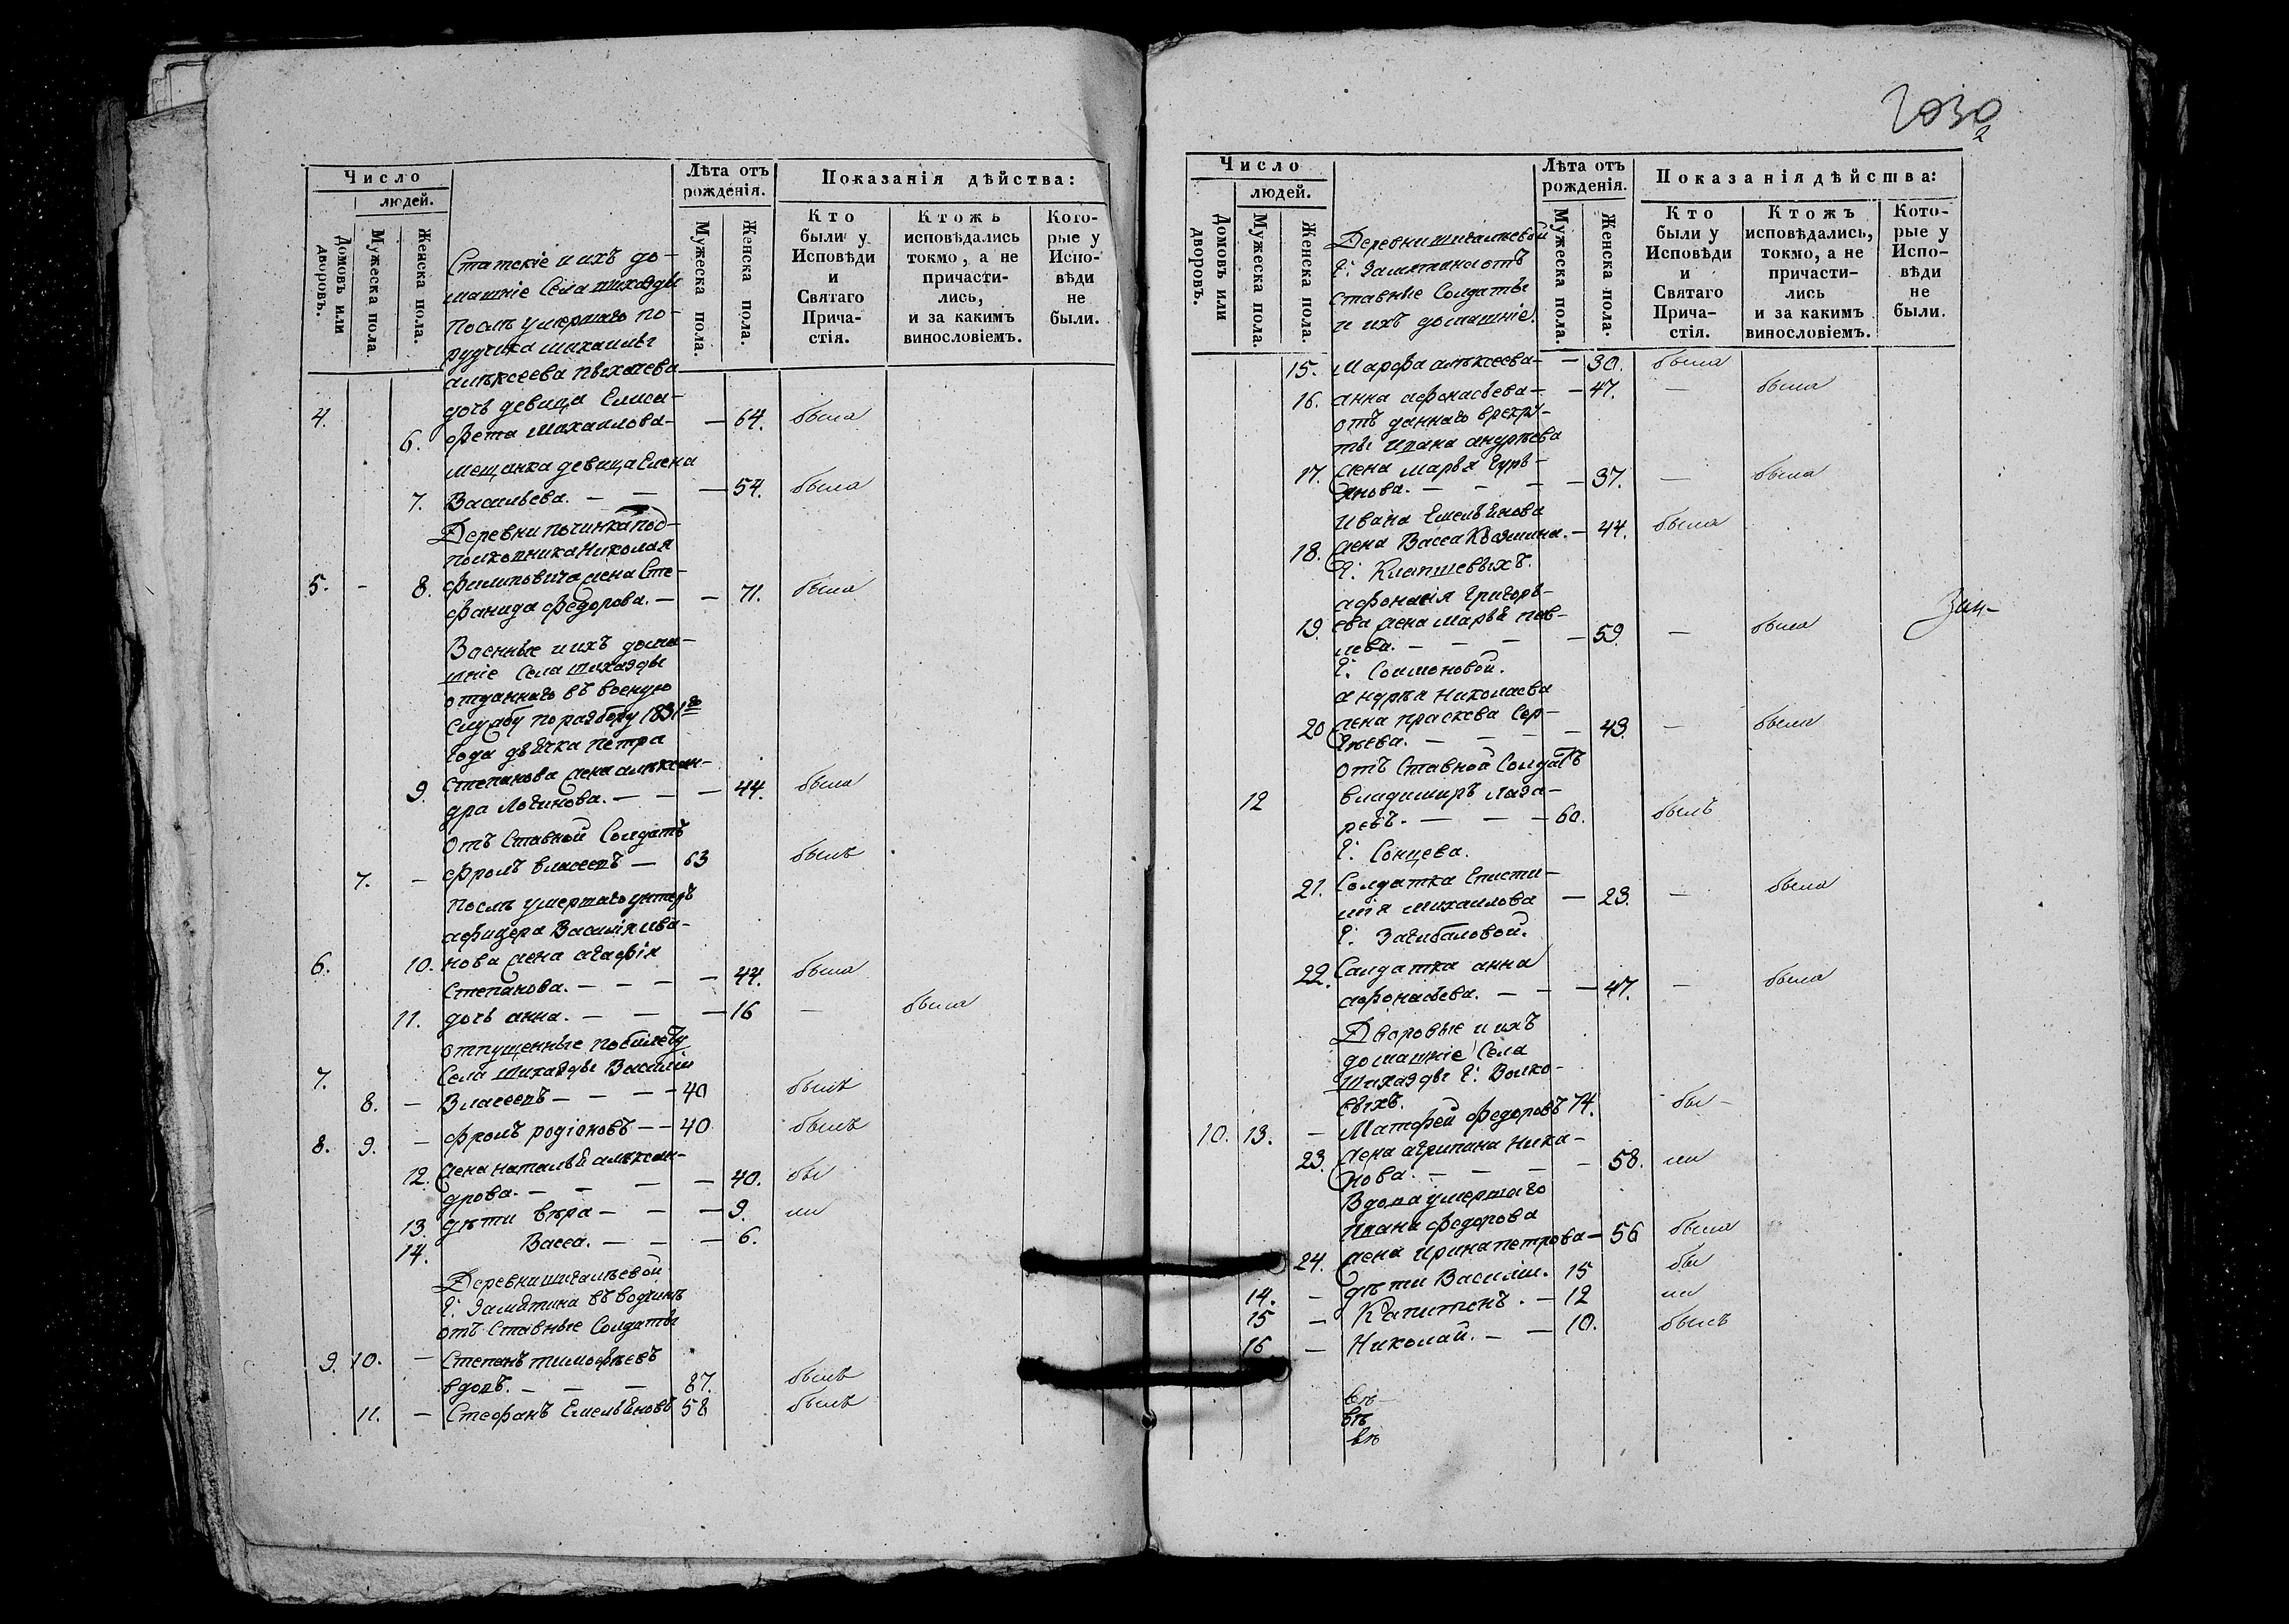 Число
людей.
Домовъ или дворовъ.
Мужеска пола.
Женска пола.
Лѣта отъ рожденія.
Мужеска пола.
Женска пола.
Показанія дѣйства:
Кто были у Исповѣди и Святаго Прича-стія.
Ктожъ исповѣдались токмо, а не причасти-лись, и за какимъ винословіемъ.
Кото-рые у Испо-вѣди не были.
Статскіе и ихъ до-
машніе Села шихазды
послѣ умершаго по-
ручика михаилы
алѣксеева пыхачева
4. дочь девица Елиса-
6. фета Михаилова — 64. была
мещанка девица Елена
7. Васильева. — — — 54. была
Деревни починка под-
полковника Николая
5. - 8. филиповича жена Сте-
фанида федорова. — — 71. была
Военные и ихъ дома-
шніе Села шихазды
отданнаго въ военую
службу по разбору 1831го
года дьячка петра
9. степанова жена алѣксан-
дра Логинова. — — — 44. была
отъ Ставной Солдатъ
7. — фролъ власевъ — 63 былъ
послѣ умершаго унтеръ
афицера Василія ива-
6. 10. нова жена агафія
Степанова. — — — 44. была
11. дочь анна. — — — 16 — была
отпущенные по билету
7. Села шихазды Василій
8. — Власевъ — — — 40 былъ
8. 9. — фролъ родіоновъ — — 40 былъ
12. жена наталья алѣксан-
дрова. — — — — 40. бы
13. дѣти вѣра — — — 9. ли
14. Васса. — — — 6.
Деревни шигалѣевой
г: Замятина въ водчинѣ
отъ Ставные Солдаты
9. 10. — Степанъ тимофѣевъ
вдовъ. — — — 87. былъ
11. — Стефанъ Емельяновъ 58 былъ
2030
2
Число
людей.
Домовъ или дворовъ.
Мужеска пола.
Женска пола.
Лѣта отъ рожденія.
Мужеска пола.
Женска пола.
Показанія дѣйства:
Кто были у Исповѣди и Святаго Прича-стія.
Ктожъ исповѣдались, токмо, а не причасти-лись и за какимъ винословіемъ.
Кото-рые у Испо-вѣди не были.
Деревни шигалѣевой
г: Замятина отъ
ставные Солдаты
и ихъ домашніе.
15. марфа алѣксеева — — 30. была
16. анна афонасьева — — 47. — была
отъ даннаго врекру-
ты ивана андрѣева
17. жена марья гурь-
янова. — — — — 37. — была
ивана Емельянова
18. жена Васса Козмина. — 44. была
г:
афонасія григорь-
19. ева жена марья пав-
лова. — — — — 59. — была
г: Соимоновой.
андрѣя николаева
20 жена праскева Сер-
гѣева. — — — — 43. — была
отъ Ставной Солдатъ
12 владимиръ лаза-
ревъ. — — — 60. былъ
г: Сонцева.
21. Солдатка Еписти-
мія михаилова — 23. — была
г: Загибаловой.
22. Салдатка анна
афонасьева. — — — 47. — была
Дворовые и ихъ
домашніе Села
шихазды г: Волко-
выхъ.
10. 13. — Матфей федоровъ 74. бы-
23. жена агрипина ника-
нова. — — — — 58. ли
Вдова умершаго
ивана федорова
24. жена ирина петрова — 56 была
14. — дѣти Василій. 15 бы
15 — Капитонъ. — 12 ли
16 — Николай. — — 10. былъ